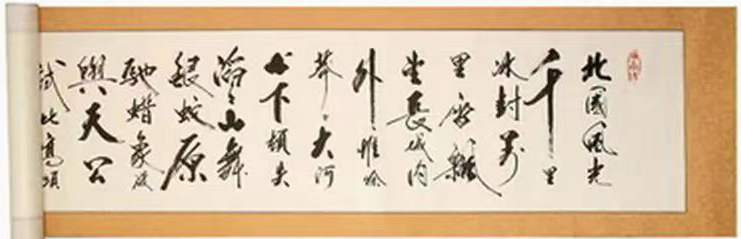 北國風光
千里
冰封萬
里雪飄
望長城内
外惟餘
莽々大河
上下頓失
滔々山舞
銀蛇原
馳蜡象欲
與天公
試比高須